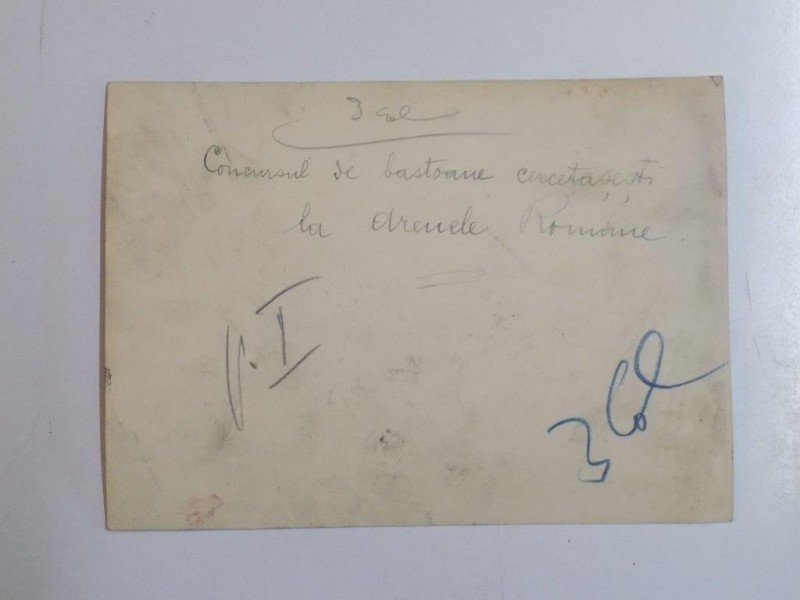 3 col
Concursul de bastoane cercetașești
la arenele Romane
p. I
3 Col